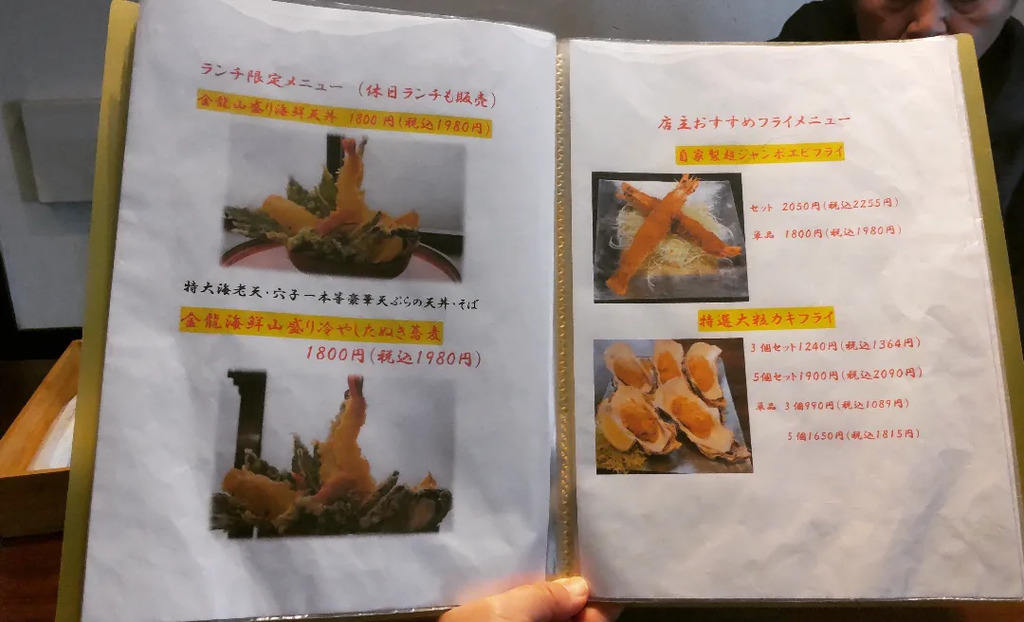 ランチ限定メニュー（休日ランチも販売）
金龍山盛り海鮮天丼 1800円(税込1980円)
特大海老天・穴子一本等豪華天ぷらの天丼・そば
金龍海鮮山盛り冷やしたぬき蕎麦
1800円(税込1980円)
店主おすすめフライメニュー
自家製超ジャンボエビフライ
セット 2050円(税込2255円)
単品 1800円(税込1980円)
特選大粒カキフライ
3個セット1240円(税込1364円)
5個セット1900円(税込2090円)
単品 3個990円(税込1089円)
5個1650円(税込1815円)